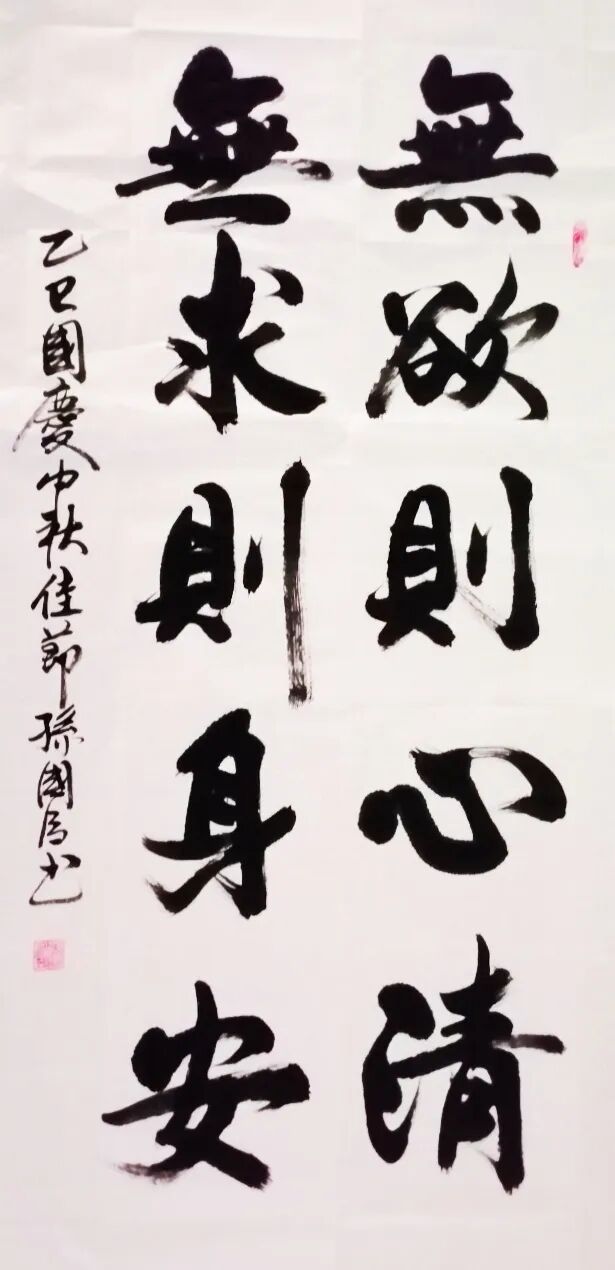 無欲則心清
無求則身安
乙巳國慶中秋佳節孫國  書